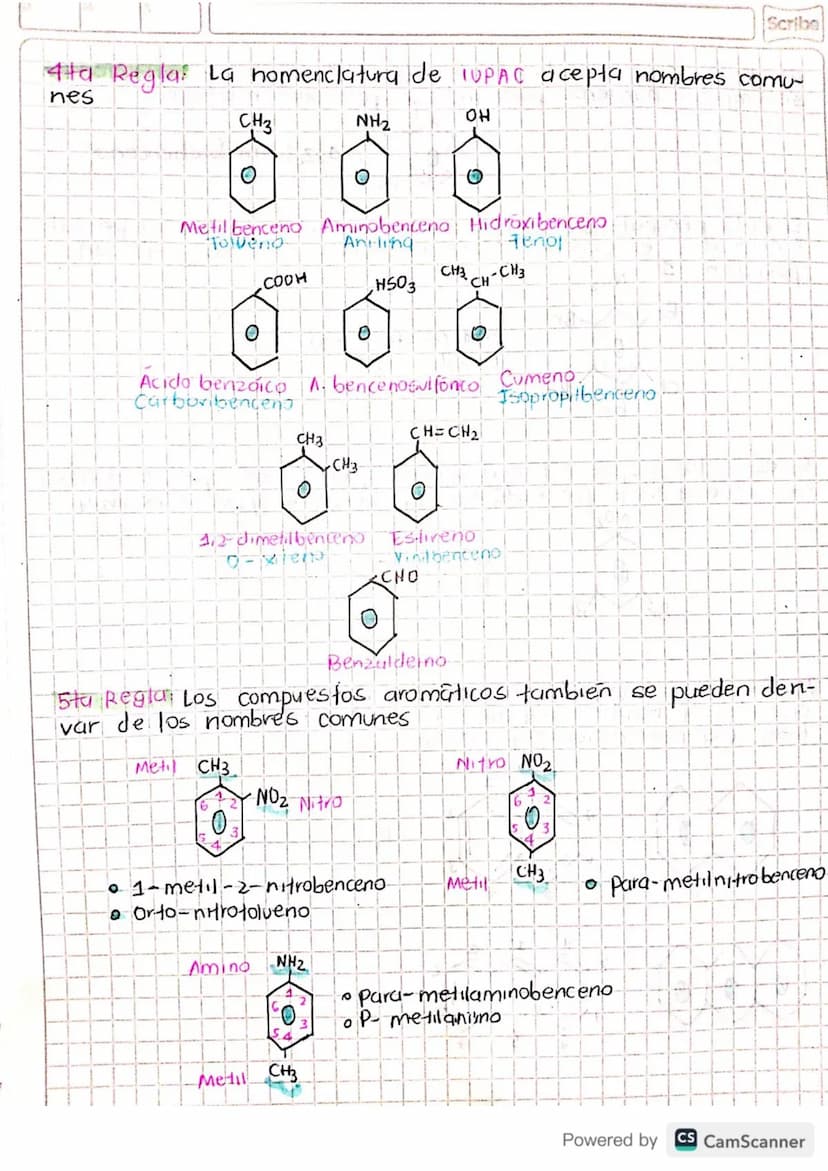 Scribe
4ta Regla: La nomenclatura de IUPAC acepta nombres comu-
nes
CH3 NH2 OH
Metilbenceno Aminobenceno Hidroxibenceno
Tolueno Anilina Fenol
COOH HSO3 CH3 CH-CH3
Ácido benzóico A. bencenosulfónico Cumeno
Carboxibenceno Isopropilbenceno
CH3 CH=CH2
CH3
1,2-dimetilbenceno Estireno
O-xileno Vinilbenceno
CHO
Benzaldeino
5ta Regla: Los compuestos aromáticos también se pueden deri-
var de los nombres comunes
Metil CH3 Nitro NO2
NO2 Nitro
1 2 3 4 5 6
1 2 3 4 5 6
Metil CH3
1-metil-2-nitrobenceno
Para-metilnitrobenceno
Orto-nitrotolueno
Amino NH2
1 2 3 4 5 6
Para-metilaminobenceno
P-metilanismo
Metil CH3
Powered by CS CamScanner